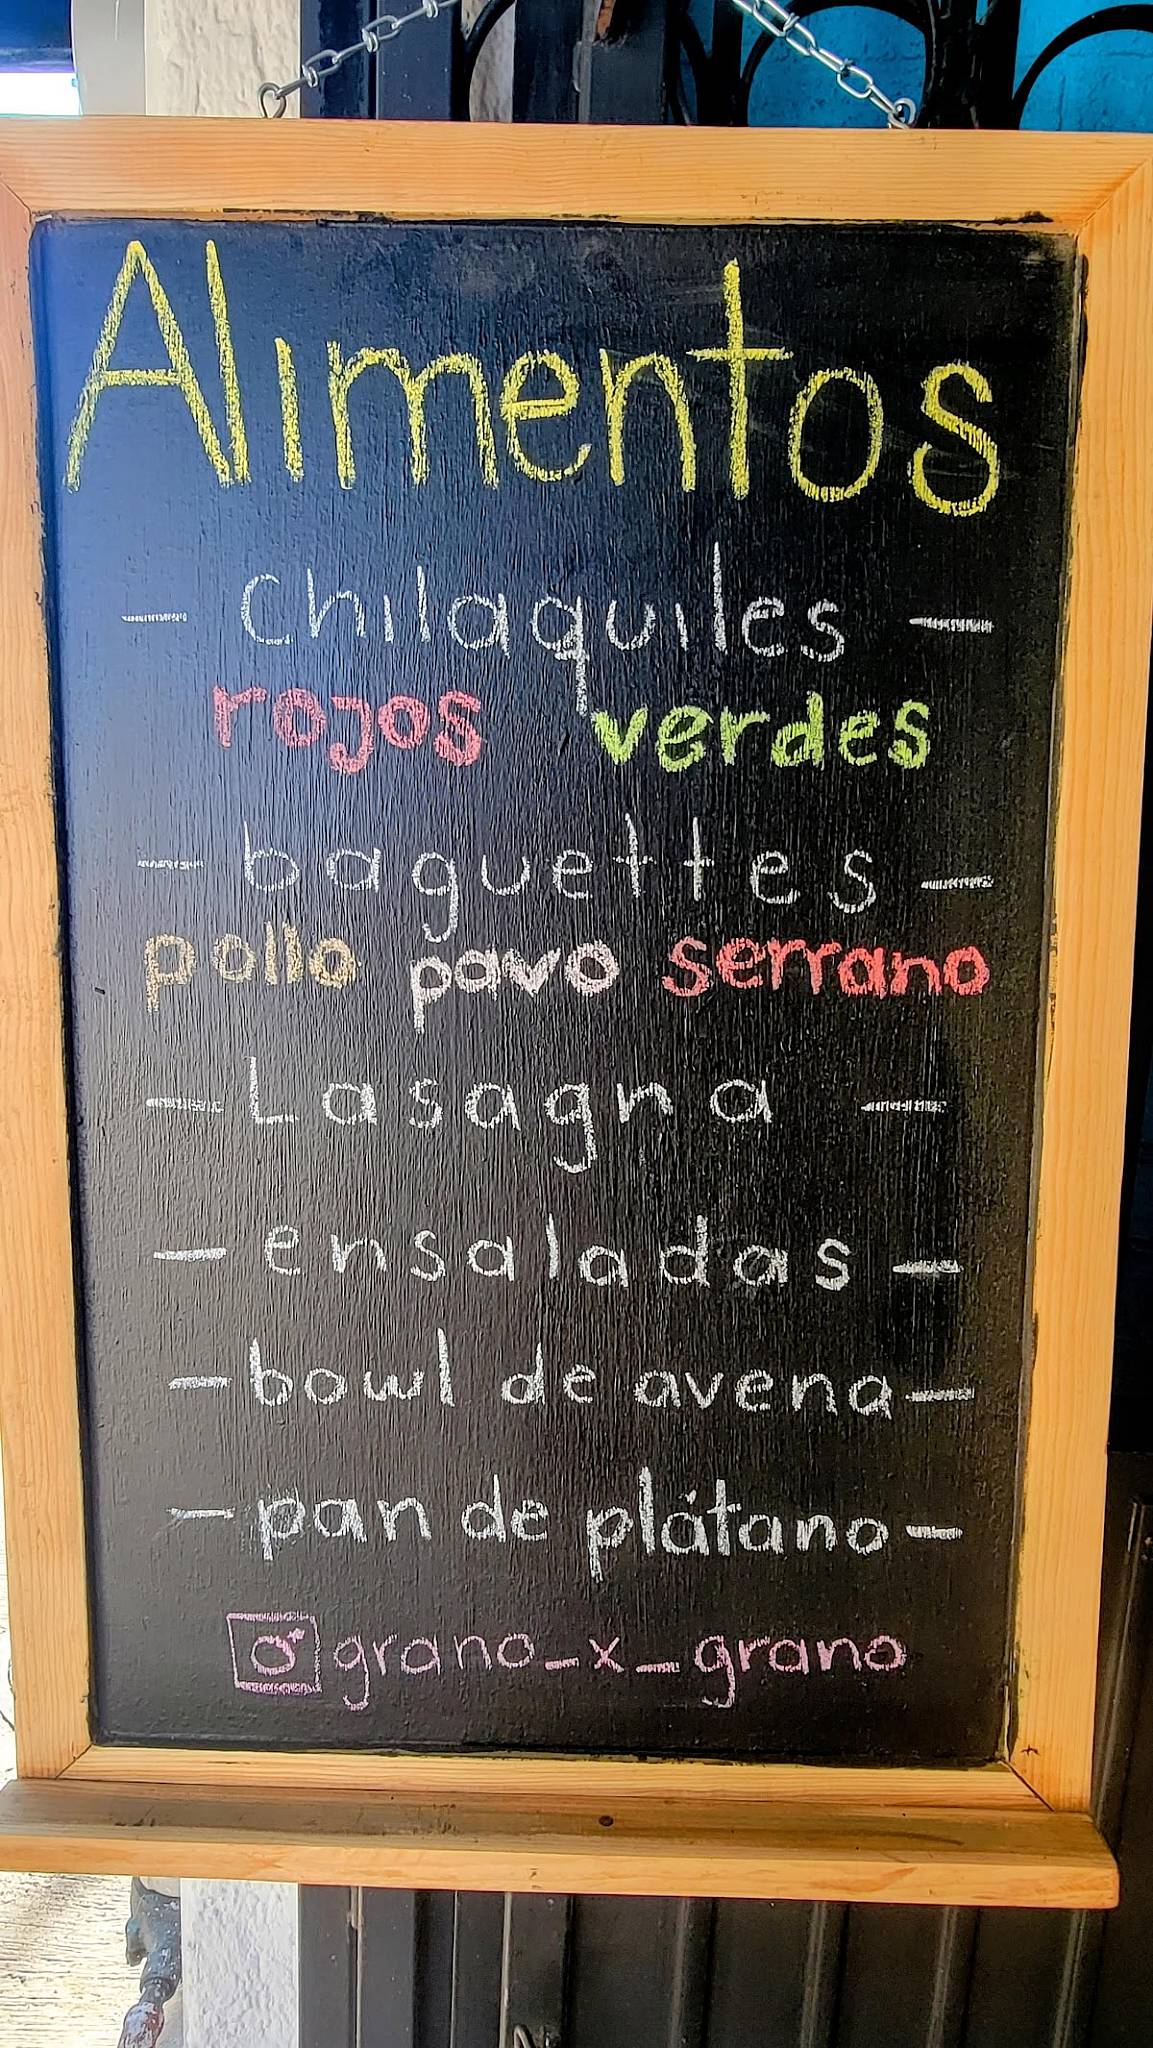 Alimentos
- Chilaquiles -
rojos verdes
- baguettes -
pollo pavo serrano
- Lasagna -
- ensaladas -
- bowl de avena -
- pan de plátano -
grano_x_grano